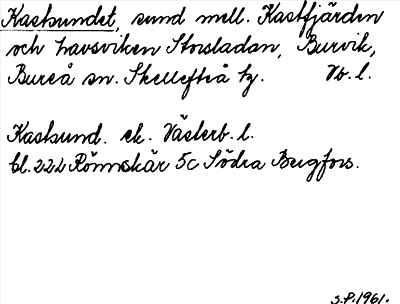 Kastsundet, sund mell. Kastfjärden
och havsviken Storsladan, Burvik,
Bureå sn. Skellefteå tg. Vb. l.
Kastsund. ek. Västerb. l.
bl. 22L Rönnskär 5c Södra Bergfors.
S.P. 1961.